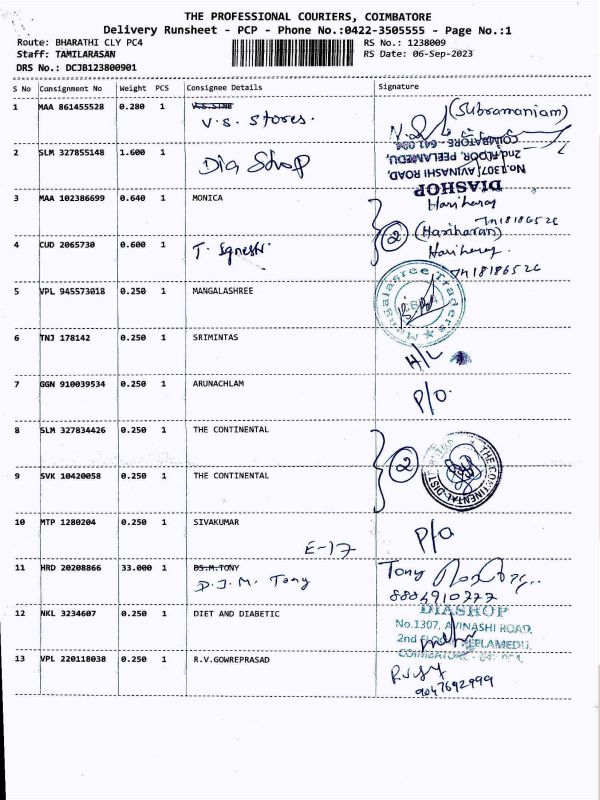 THE PROFESSIONAL COURIERS, COIMBATORE
Delivery Runsheet - PCP - Phone No.:0422-3505555 - Page No.:1
Route: BHARATHI CLY PC4 RS No.: 1238009
Staff: TAMILARASAN RS Date: 06-Sep-2023
DRS No.: DCJB123800901
S No Consignment No Weight PCS Consignee Details Signature
1 MAA 861455528 0.280 1 (Subramaniam)
V.S. Stores.
2 SLM 327855148 1.600 1 Dia Shop
DIASHOP
No.1307, AVINASHI ROAD,
2nd FLOOR, PEELAMEDU,
COIMBATORE - 641 004
3 MAA 102386699 0.640 1 MONICA Hariharan
2 (Hariharan)
4 CUD 2065730 0.600 1 T. Hariharan
5 VPL 945573018 0.250 1 MANGALASHREE Mangalasree Traders
6 TNJ 178142 0.250 1 SRIMINTAS H/L
7 GGN 910039534 0.250 1 ARUNACHLAM P/O.
8 SLM 327834426 0.250 1 THE CONTINENTAL
2 THE CONTINENTAL DIST
9 SVK 10420058 0.250 1 THE CONTINENTAL
10 MTP 1280204 0.250 1 SIVAKUMAR P/O
E-17
11 HRD 20208866 33.000 1 DS.M.TONY Tony
D.J.M. Tony
12 NKL 3234607 0.250 1 DIET AND DIABETIC DIASHOP
No.1307, AVINASHI ROAD,
2nd FLOOR, PEELAMEDU,
COIMBATORE
13 VPL 220118038 0.250 1 R.V.GOWREPRASAD
9047692999